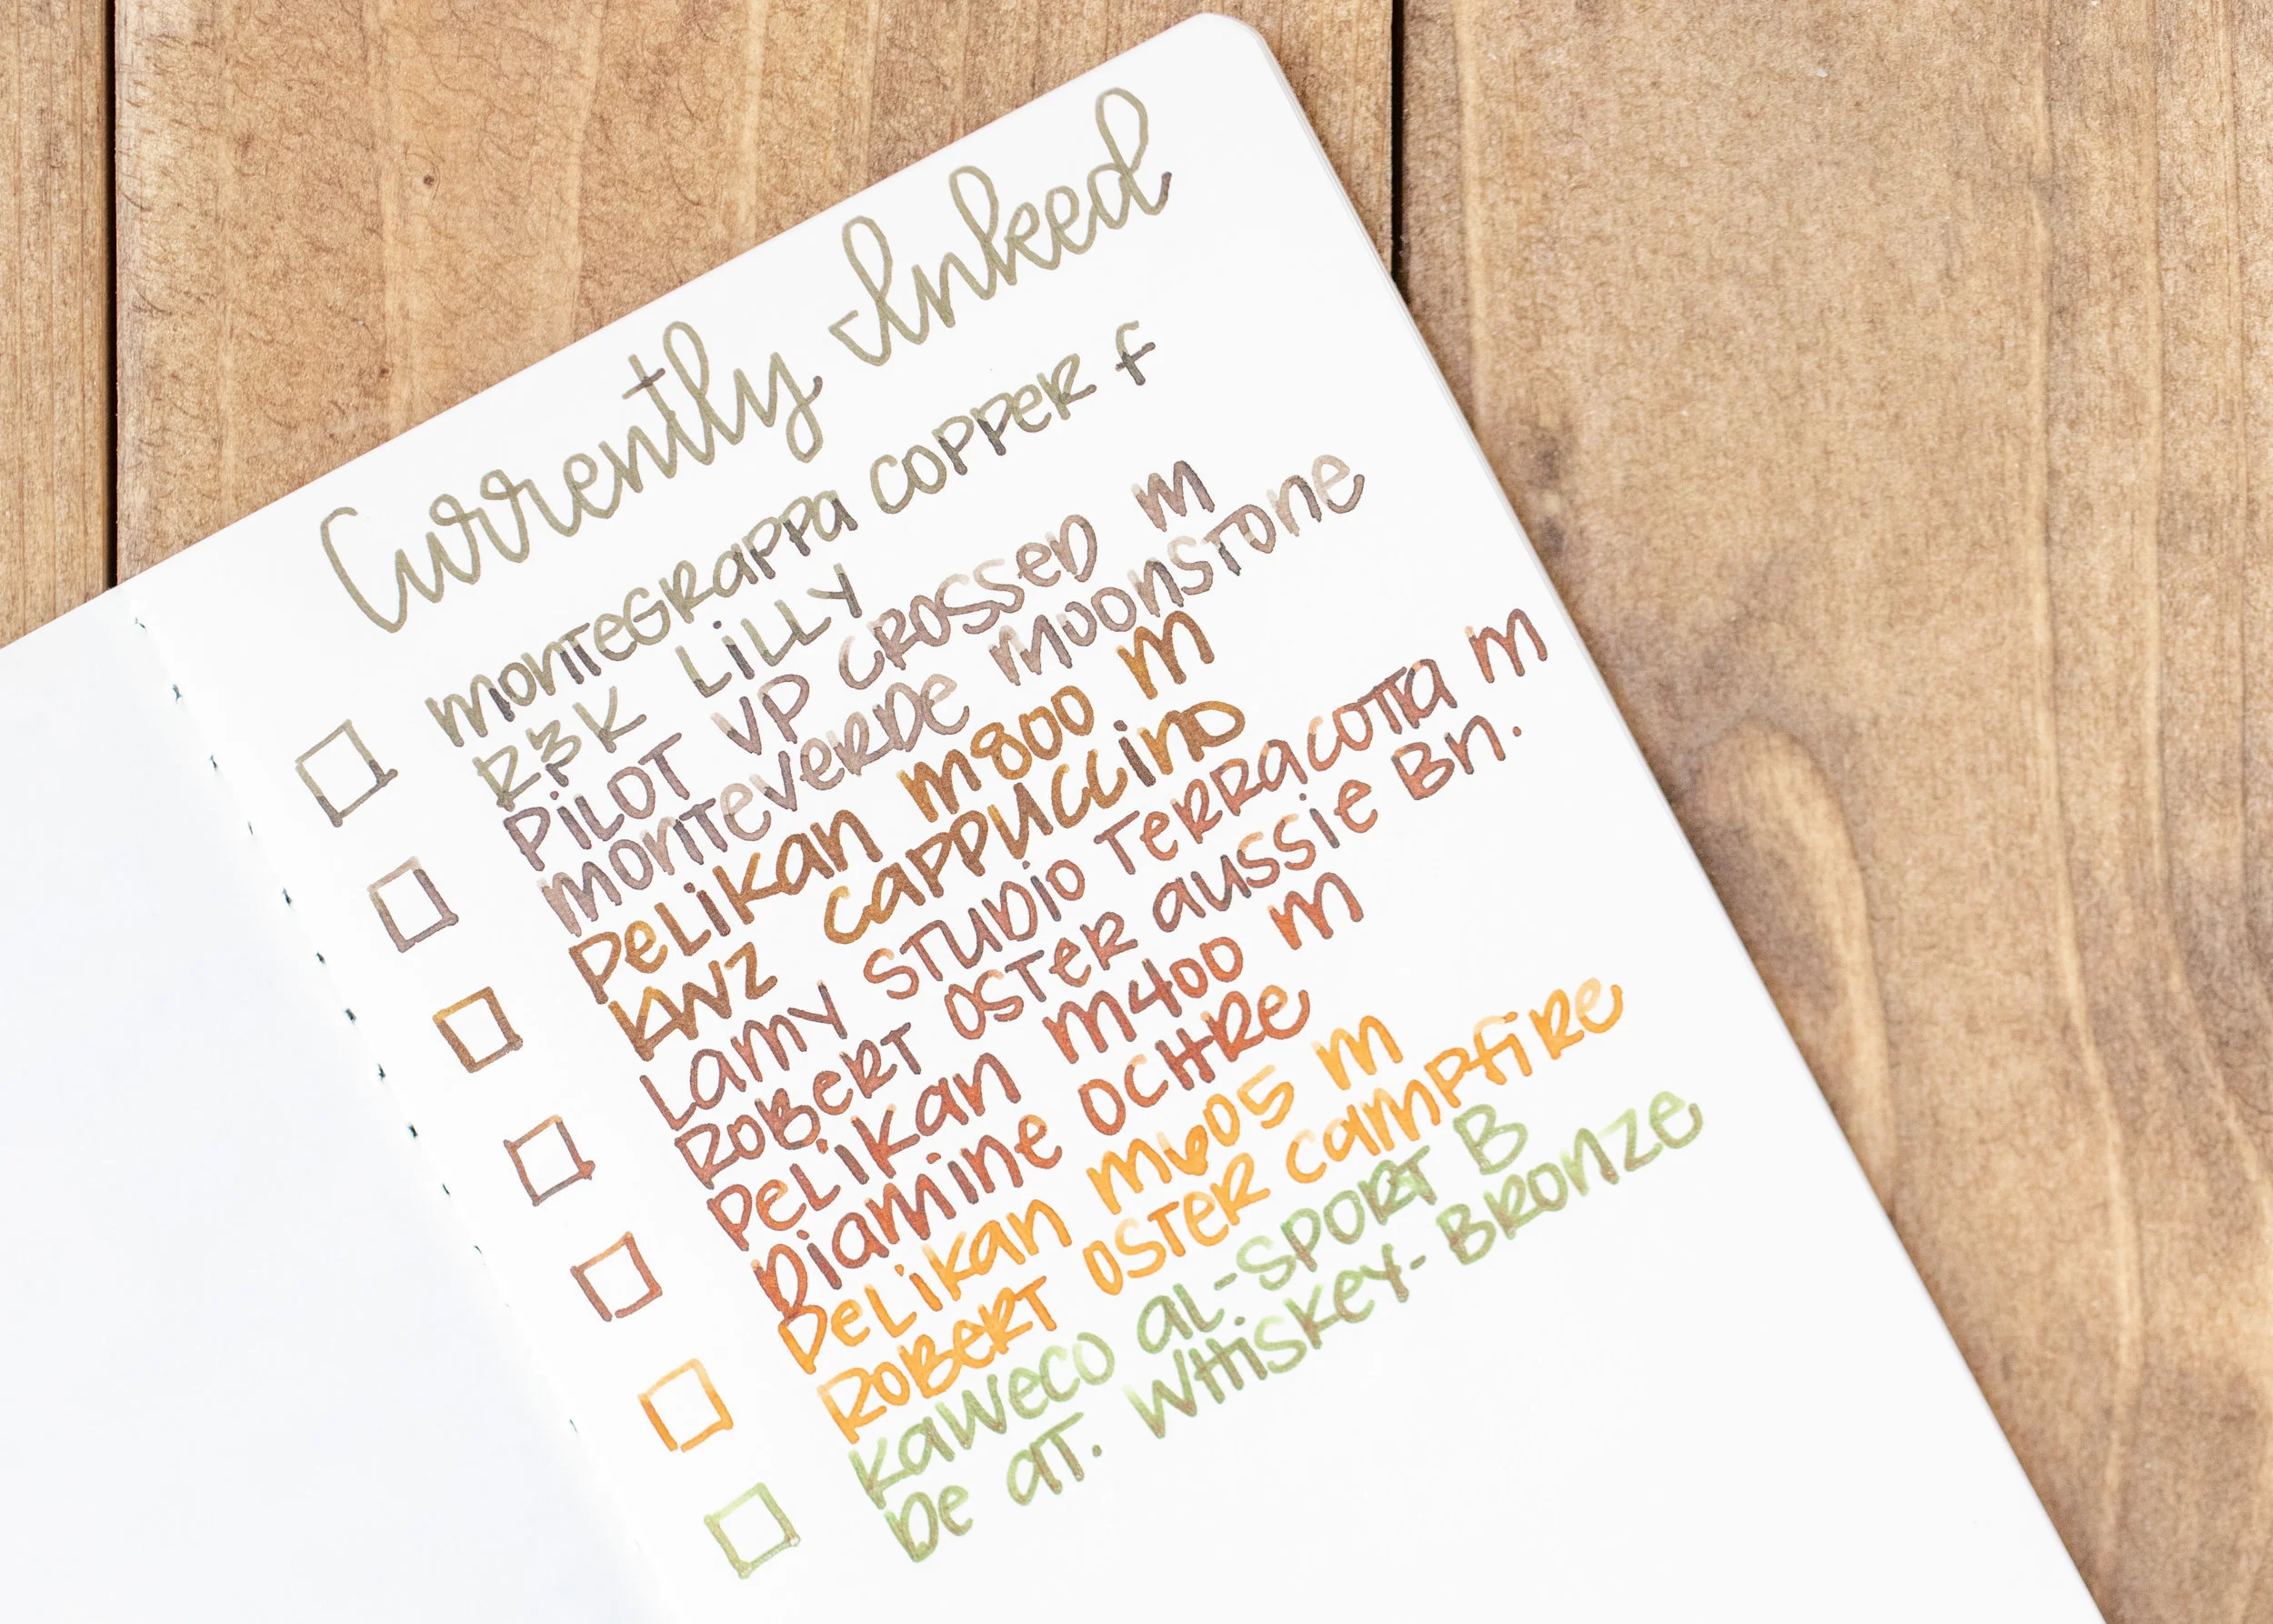 Currently Inked
Montegrappa Copper F
R3K Lilly
Pilot VP Crossed M
Monteverde Moonstone
Pelikan M800 M
KWZ Cappuccino
Lamy Studio Terracotta M
Robert Oster Aussie Bn.
Pelikan M400 M
Diamine Ochre
Pelikan M605 M
Robert Oster Campfire
Kaweco AL-Sport B
De At. Whiskey-Bronze